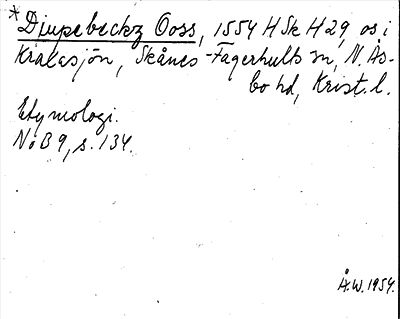 *Djupebeckz Ooss, 1554 HSk H29, os. i
Kralasjön, Skånes-Fagerhults sn, N. Ås-
bo hd, Krist. l.
Etymologi.
NoB 9, s. 134.
Å.W. 1954.